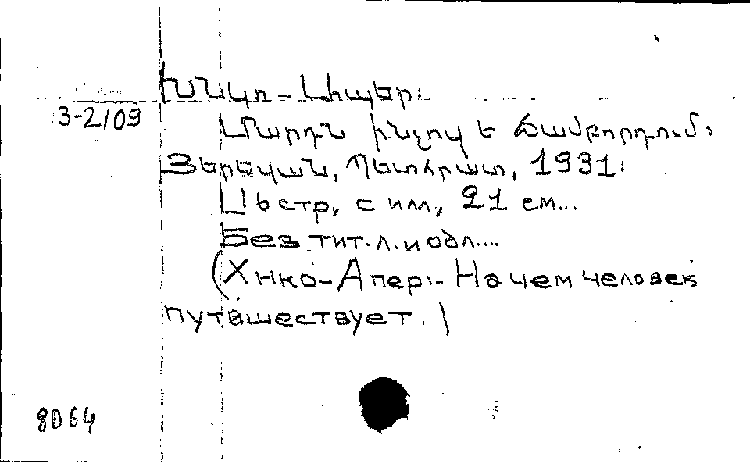 Խնկո-Ապեր։
3-2109
Մարդն ինչով է ճամբորդում։
Յերեվան, Պետհրատ, 1931։
стр, с ил, 21 см...
Без тит. л. и обл....
(Хнко-Апер։- На чем человек
путешествует.)
8064